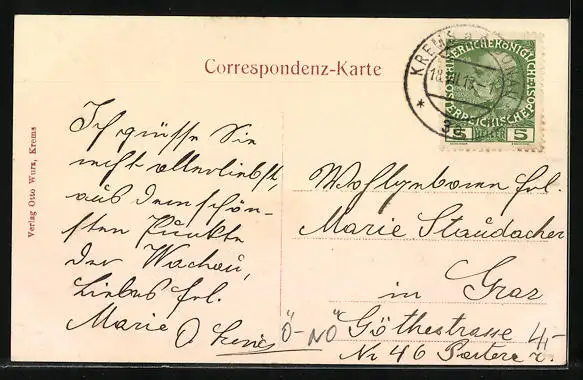 Correspondenz-Karte
KREMS a. d. DONAU
3c
KAISERLICHE KÖNIGLICHE
ÖSTERREICHISCHE POST
5 HELLER 5
Verlag Otto Wurz, Krems
Ich grüsse Sie
recht allerliebst,
aus dem schön-
sten Punkte
der Wachau,
Liebes Frl.
Marie
Wohlgeboren Frl.
Marie Staudacher
in Graz
Göthestrasse
Nr 46 Partere r.
Ö-NÖ
4,-